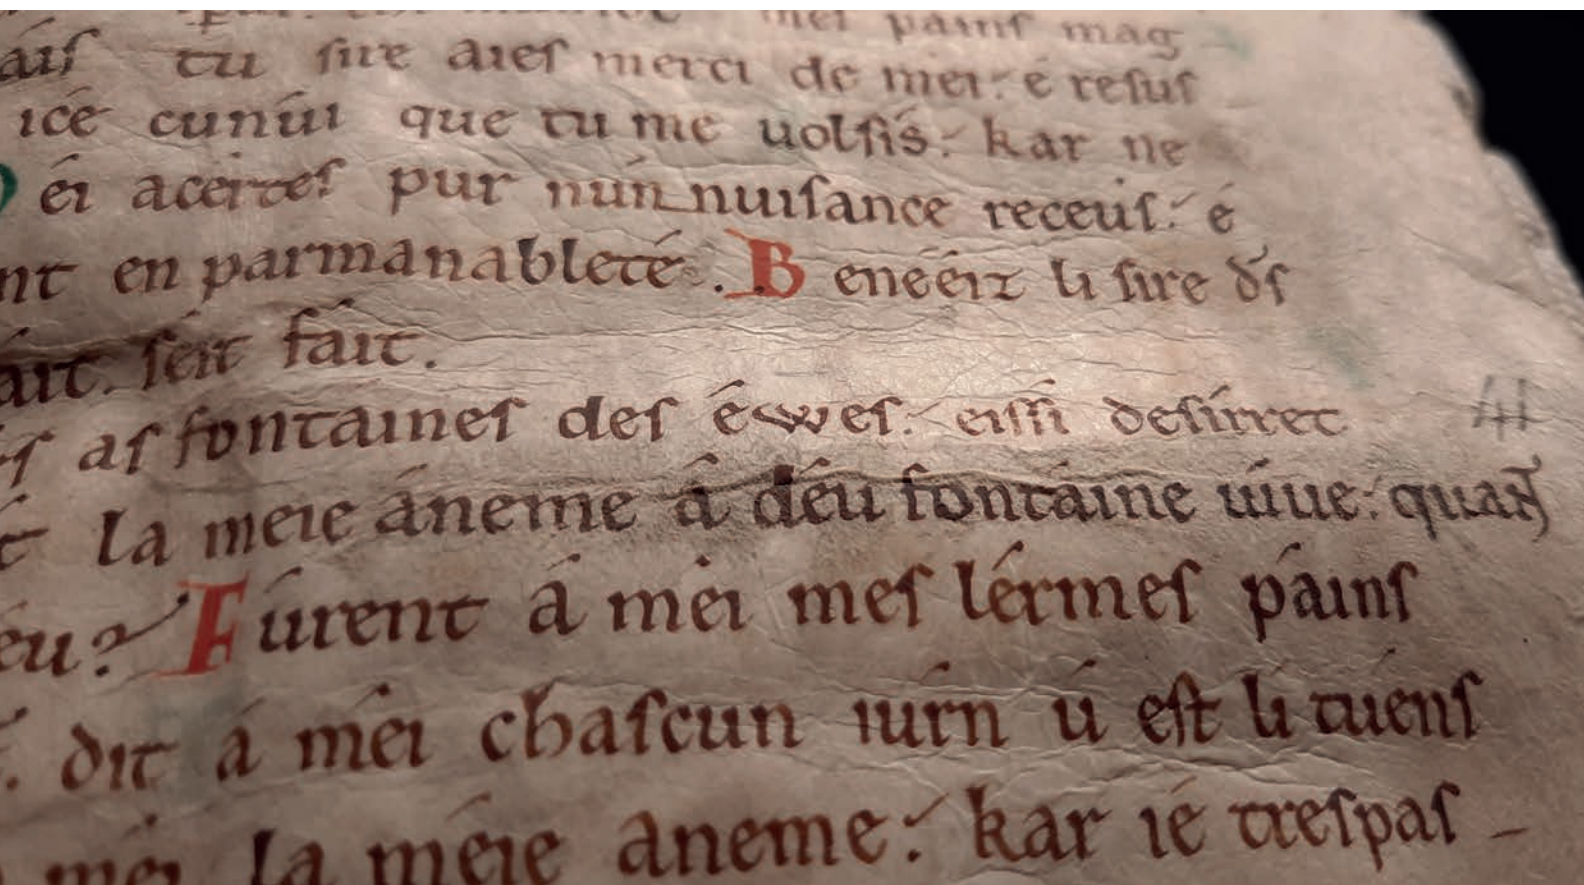 mei painſ mag
aiſ tu ſire aieſ merci de mei. é reſuſ
icé cunúi que tu me uolſis. kar ne
éi aceirteſ pur nún nuiſance receuſ. é
nt en parmanableté. Benééiz li ſire dſ
ait. ſeit fait.
aſ fontaineſ deſ éwweſ. eiſſi deſirret
la meie áneme á déu fontáine uiue. quant
éu? Fúrent á méi meſ lérmeſ páinſ
dit á méi chaſcun iúrn ú eſt li tuenſ
méi la méie aneme. kar ié treſpaſ -
41